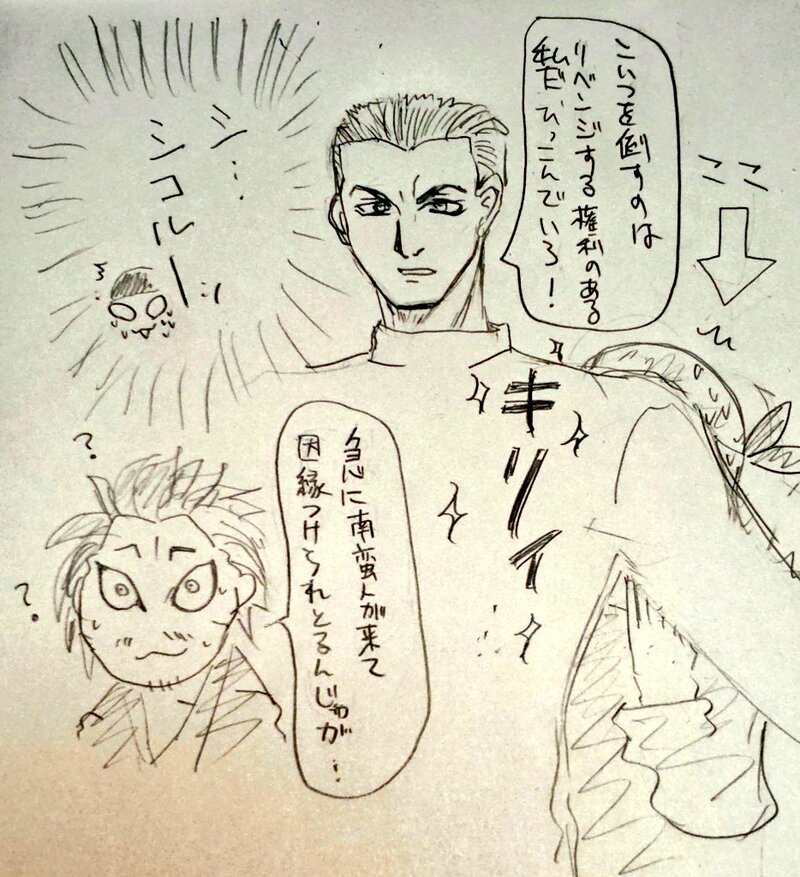 ここ
こいつを倒すのは
リベンジする権利のある
私だ ひっこんでいろ!
シ…
シコルーー!!
キリィ
急に南蛮人が来て
因縁つけられとるんじゃが…
?
?